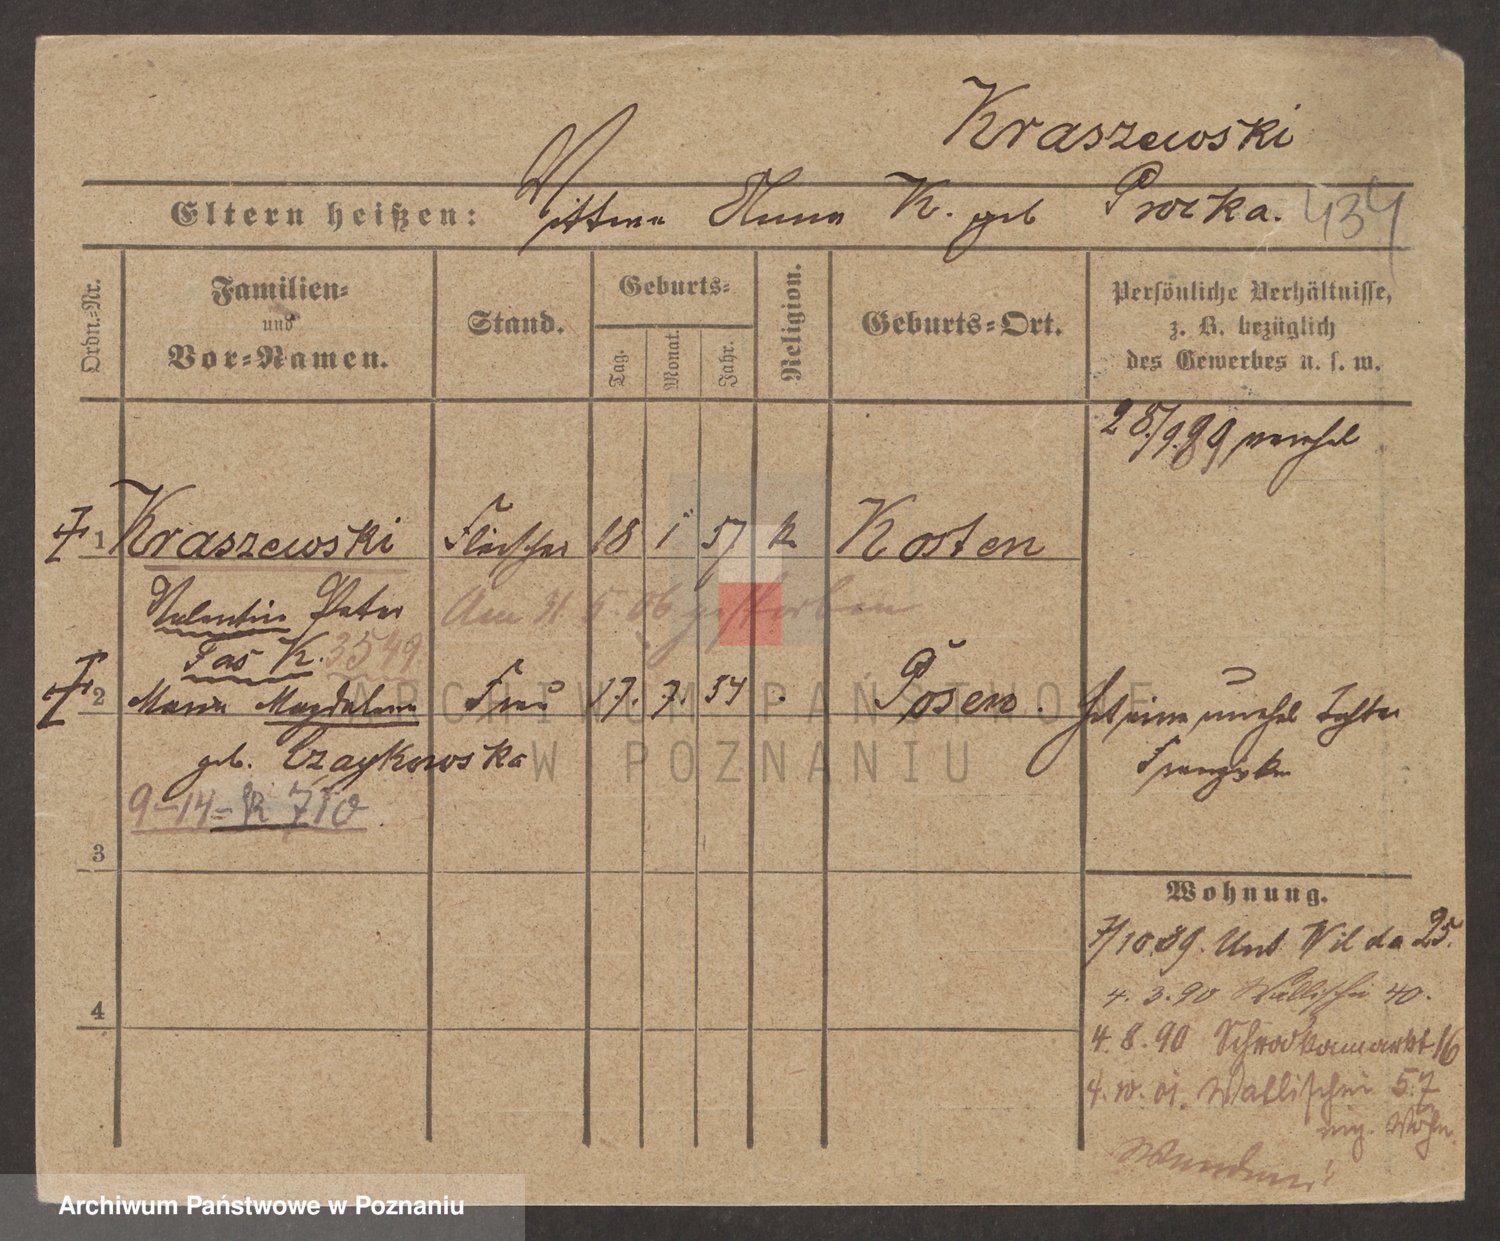 Kraszewski
Eltern heißen: Anna K. geb Procka. 434
Ordn.-Nr.
Familien-
und
Vor-Namen.
Stand.
Geburts-
Tag.
Monat.
Jahr.
Religion.
Geburts-Ort.
Persönliche Verhältnisse,
z. B. bezüglich
des Gewerbes u. s. w.
28/9.89 verehel
1 Kraszewski Fleischer 18 1 57 k Kosten
Valentin Peter Am 31. 5. 06 gestorben
K. 3549.
2 Maria Magdalena Frau 17. 7. 54 Posen. Hat eine unehel Tochter
geb. Czaykowska
9-14= K 710
3
4
Wohnung.
7/10.89. Unt Wilda 25.
4. 3. 90 Wallischei 40.
4. 8. 90 Schrodkamarkt 16
4. 10. 01. Wallischei 57
ARCHIWUM PAŃSTWOWE
W POZNANIU
Archiwum Państwowe w Poznaniu